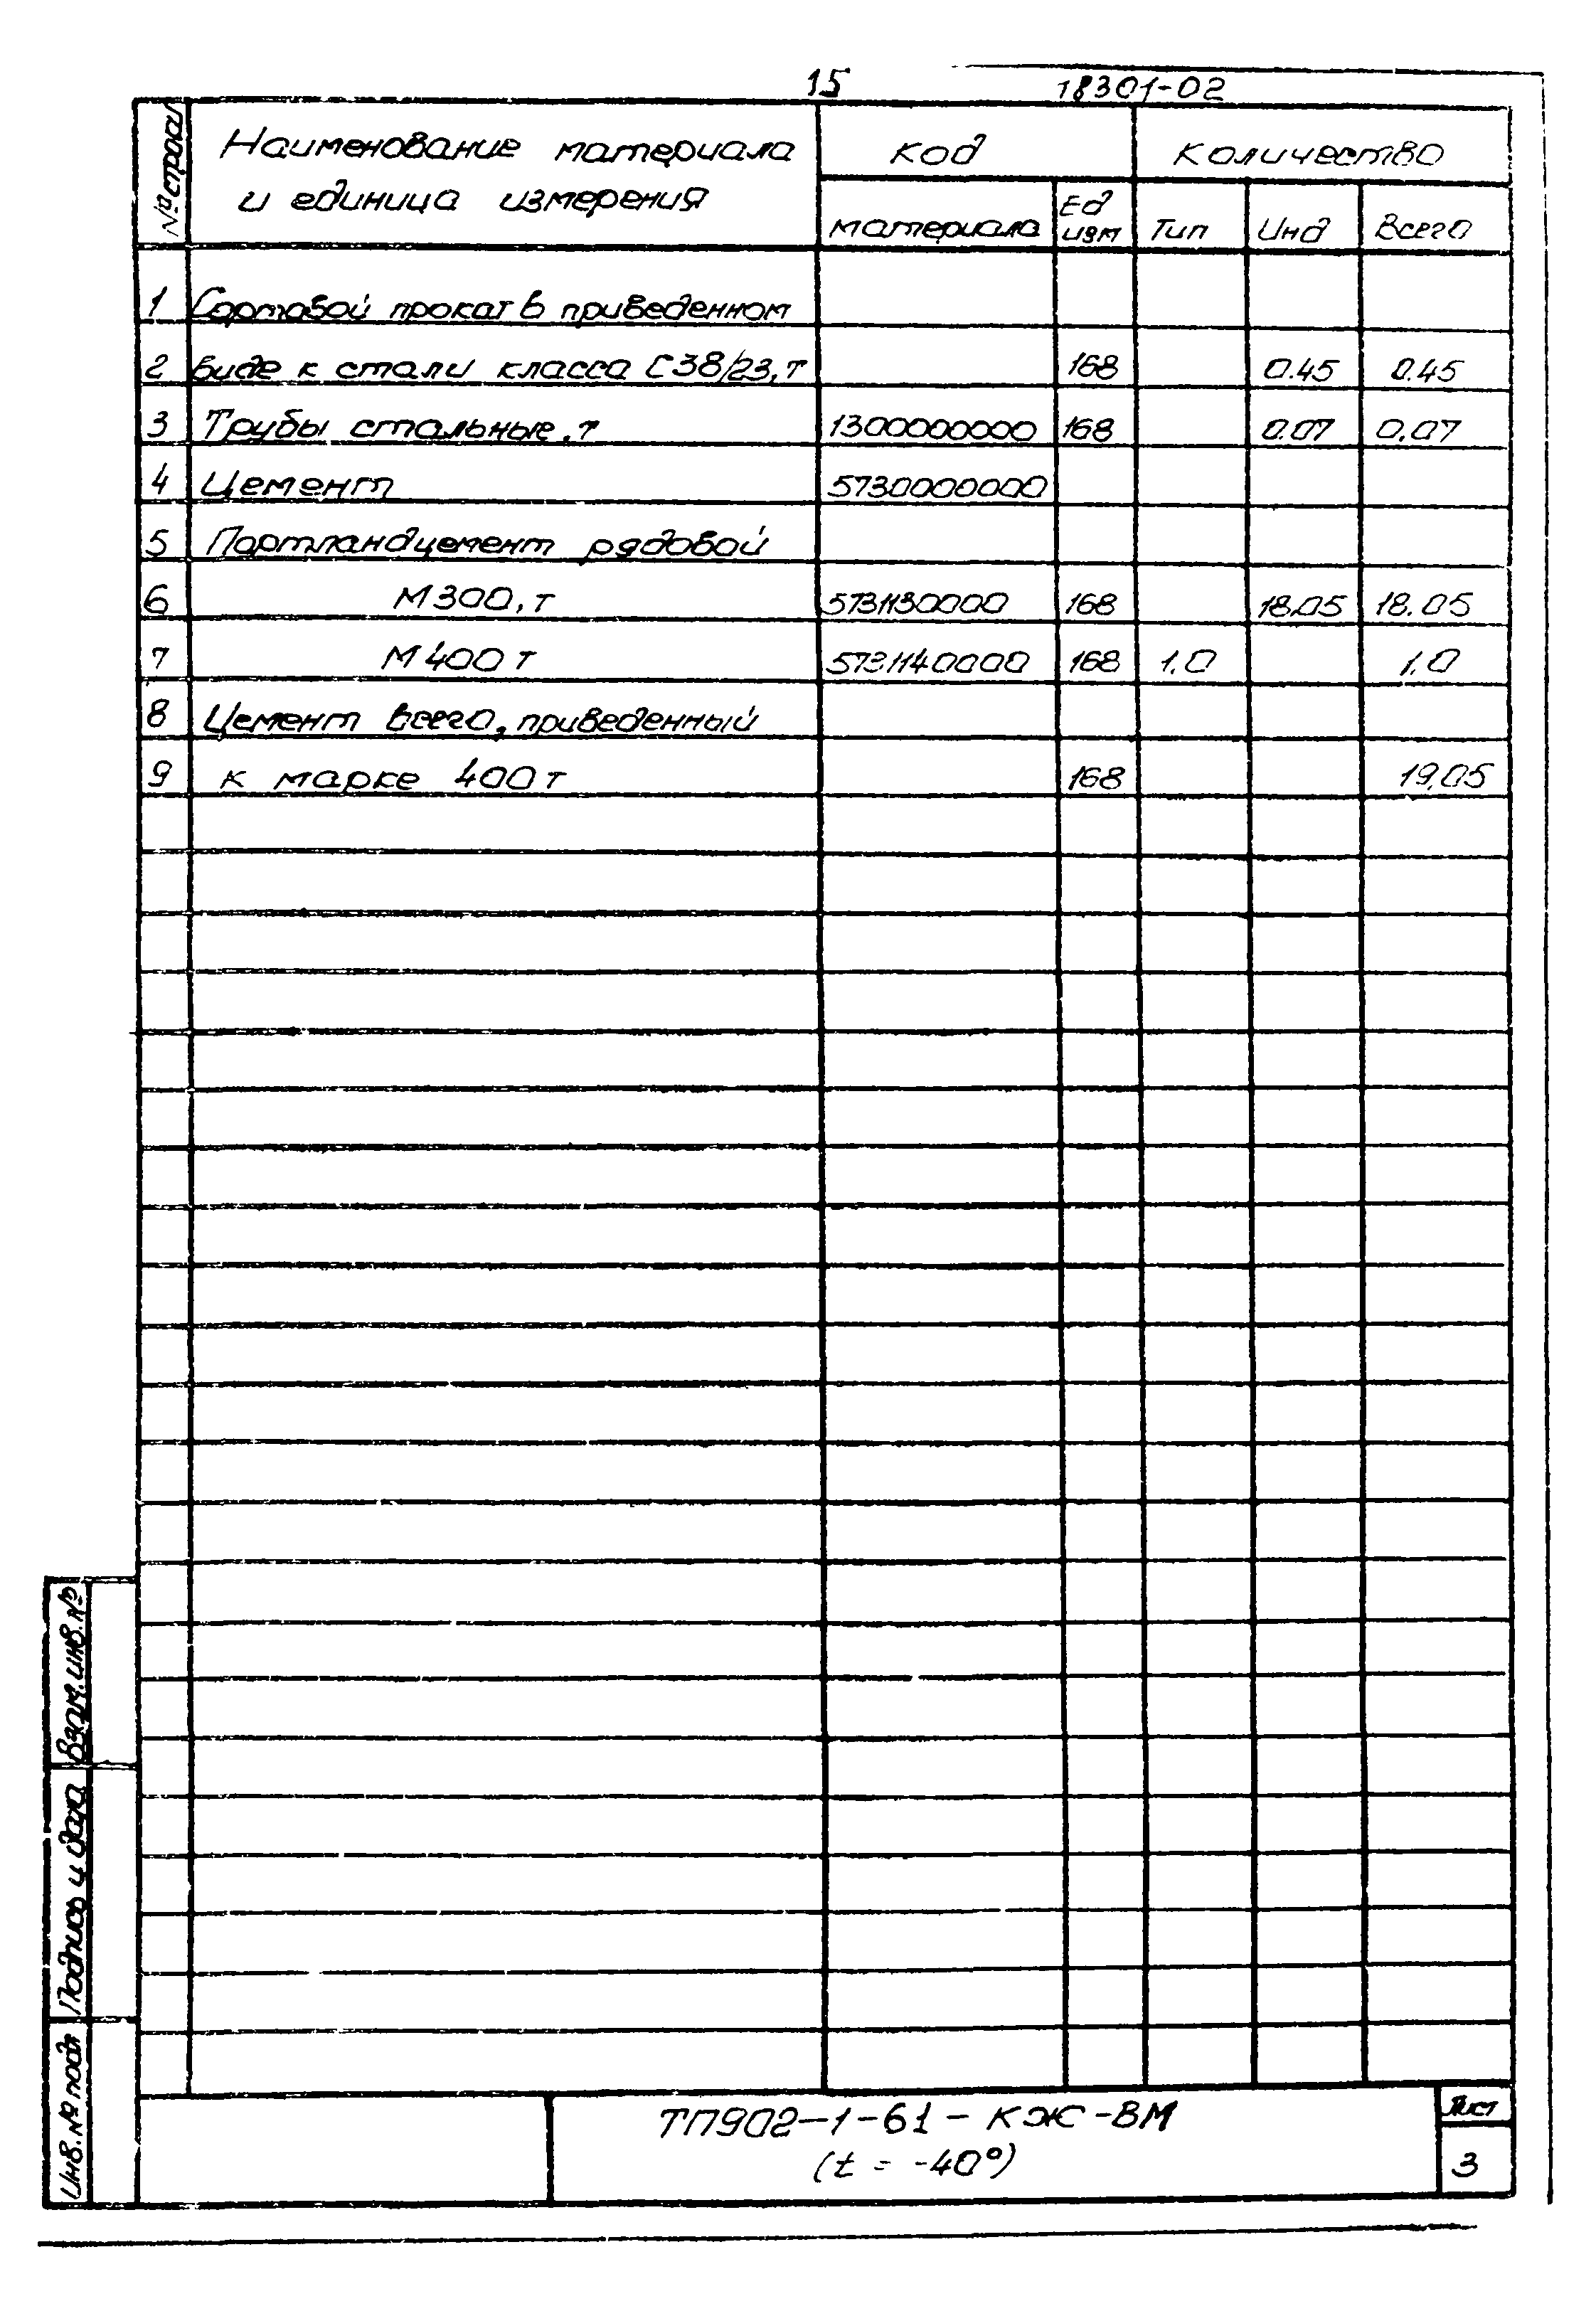 15 18301-02
№ строк
Наименование материала
и единица измерения
Код
Количество
материала
Ед
изм
Тип
Инд
Всего
1 Сортовой прокат в приведенном
2 виде к стали класса С38/23, т 168 0.45 0.45
3 Трубы стальные, т 1300000000 168 0.07 0.07
4 Цемент 5730000000
5 Портландцемент рядовой
6 М300, т 5731130000 168 18.05 18.05
7 М400 т 5731140000 168 1.0 1.0
8 Цемент всего, приведенный
9 к марке 400 т 168 19.05
Взам. инв. №
Подпись и дата
Инв. № подл
ТП902-1-61-КЖ-ВМ
(t = -40°)
Лист
3